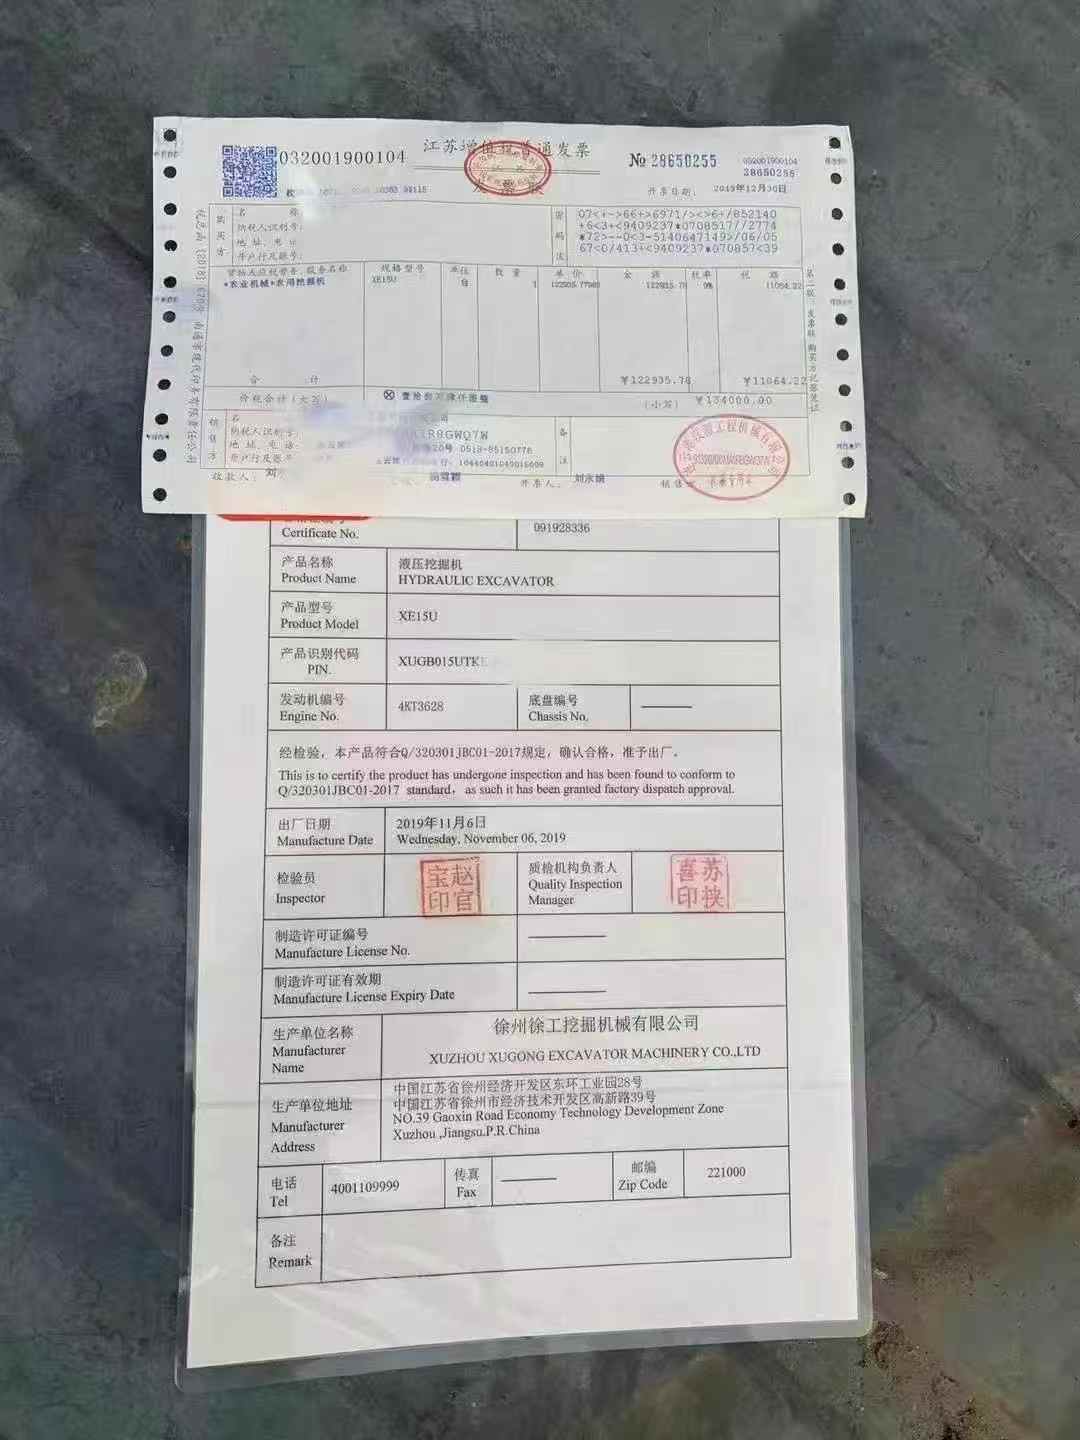 032001900104
江苏增值税普通发票
№ 28650255
032001900104
28650255
开票日期: 2019年12月30日
购买方
名 称:
纳税人识别号:
地 址、电 话:
开户行及账号:
密码
07<+->66+>6971/><>6+/852140
+6<3+<9409237*07085177/2774
*72>--0<3-5140647149>/06/05
67<0/413+<9409237*070857<39
货物或应税劳务、服务名称 规格型号 单位 数量 单价 金额 税率 税额
*农业机械*农用挖掘机 XE15U 台 1 122935.77982 122935.78 9% 11064.22
合 计 ¥122935.78 ¥11064.22
价税合计(大写) ⊗ 壹拾叁万肆仟圆整 (小写) ¥134000.00
销售方
名
纳税人识别号: R8GWQ7W
地 址、电 话: 20号 0518-85150776
开户行及账号: 10440401040016009
备注
收款人: 刘 开票人: 刘永娟 销售
第二联:发票联 购买方记账凭证
Certificate No. 091928336
产品名称 液压挖掘机
Product Name HYDRAULIC EXCAVATOR
产品型号
Product Model XE15U
产品识别代码
PIN. XUGB015UTK
发动机编号 底盘编号
Engine No. 4KT3628 Chassis No. ———
经检验，本产品符合Q/320301JBC01-2017规定，确认合格，准予出厂。
This is to certify the product has undergone inspection and has been found to conform to
Q/320301JBC01-2017 standard, as such it has been granted factory dispatch approval.
出厂日期 2019年11月6日
Manufacture Date Wednesday, November 06, 2019
检验员
Inspector
赵官宝印
质检机构负责人
Quality Inspection
Manager
苏挟喜印
制造许可证编号
Manufacture License No. ———
制造许可证有效期
Manufacture License Expiry Date ———
生产单位名称
Manufacturer
Name
徐州徐工挖掘机械有限公司
XUZHOU XUGONG EXCAVATOR MACHINERY CO.,LTD
生产单位地址
Manufacturer
Address
中国江苏省徐州经济开发区东环工业园28号
中国江苏省徐州市经济技术开发区高新路39号
NO.39 Gaoxin Road Economy Technology Development Zone
Xuzhou ,Jiangsu.P.R.China
电话 传真 邮编
Tel 4001109999 Fax ——— Zip Code 221000
备注
Remark